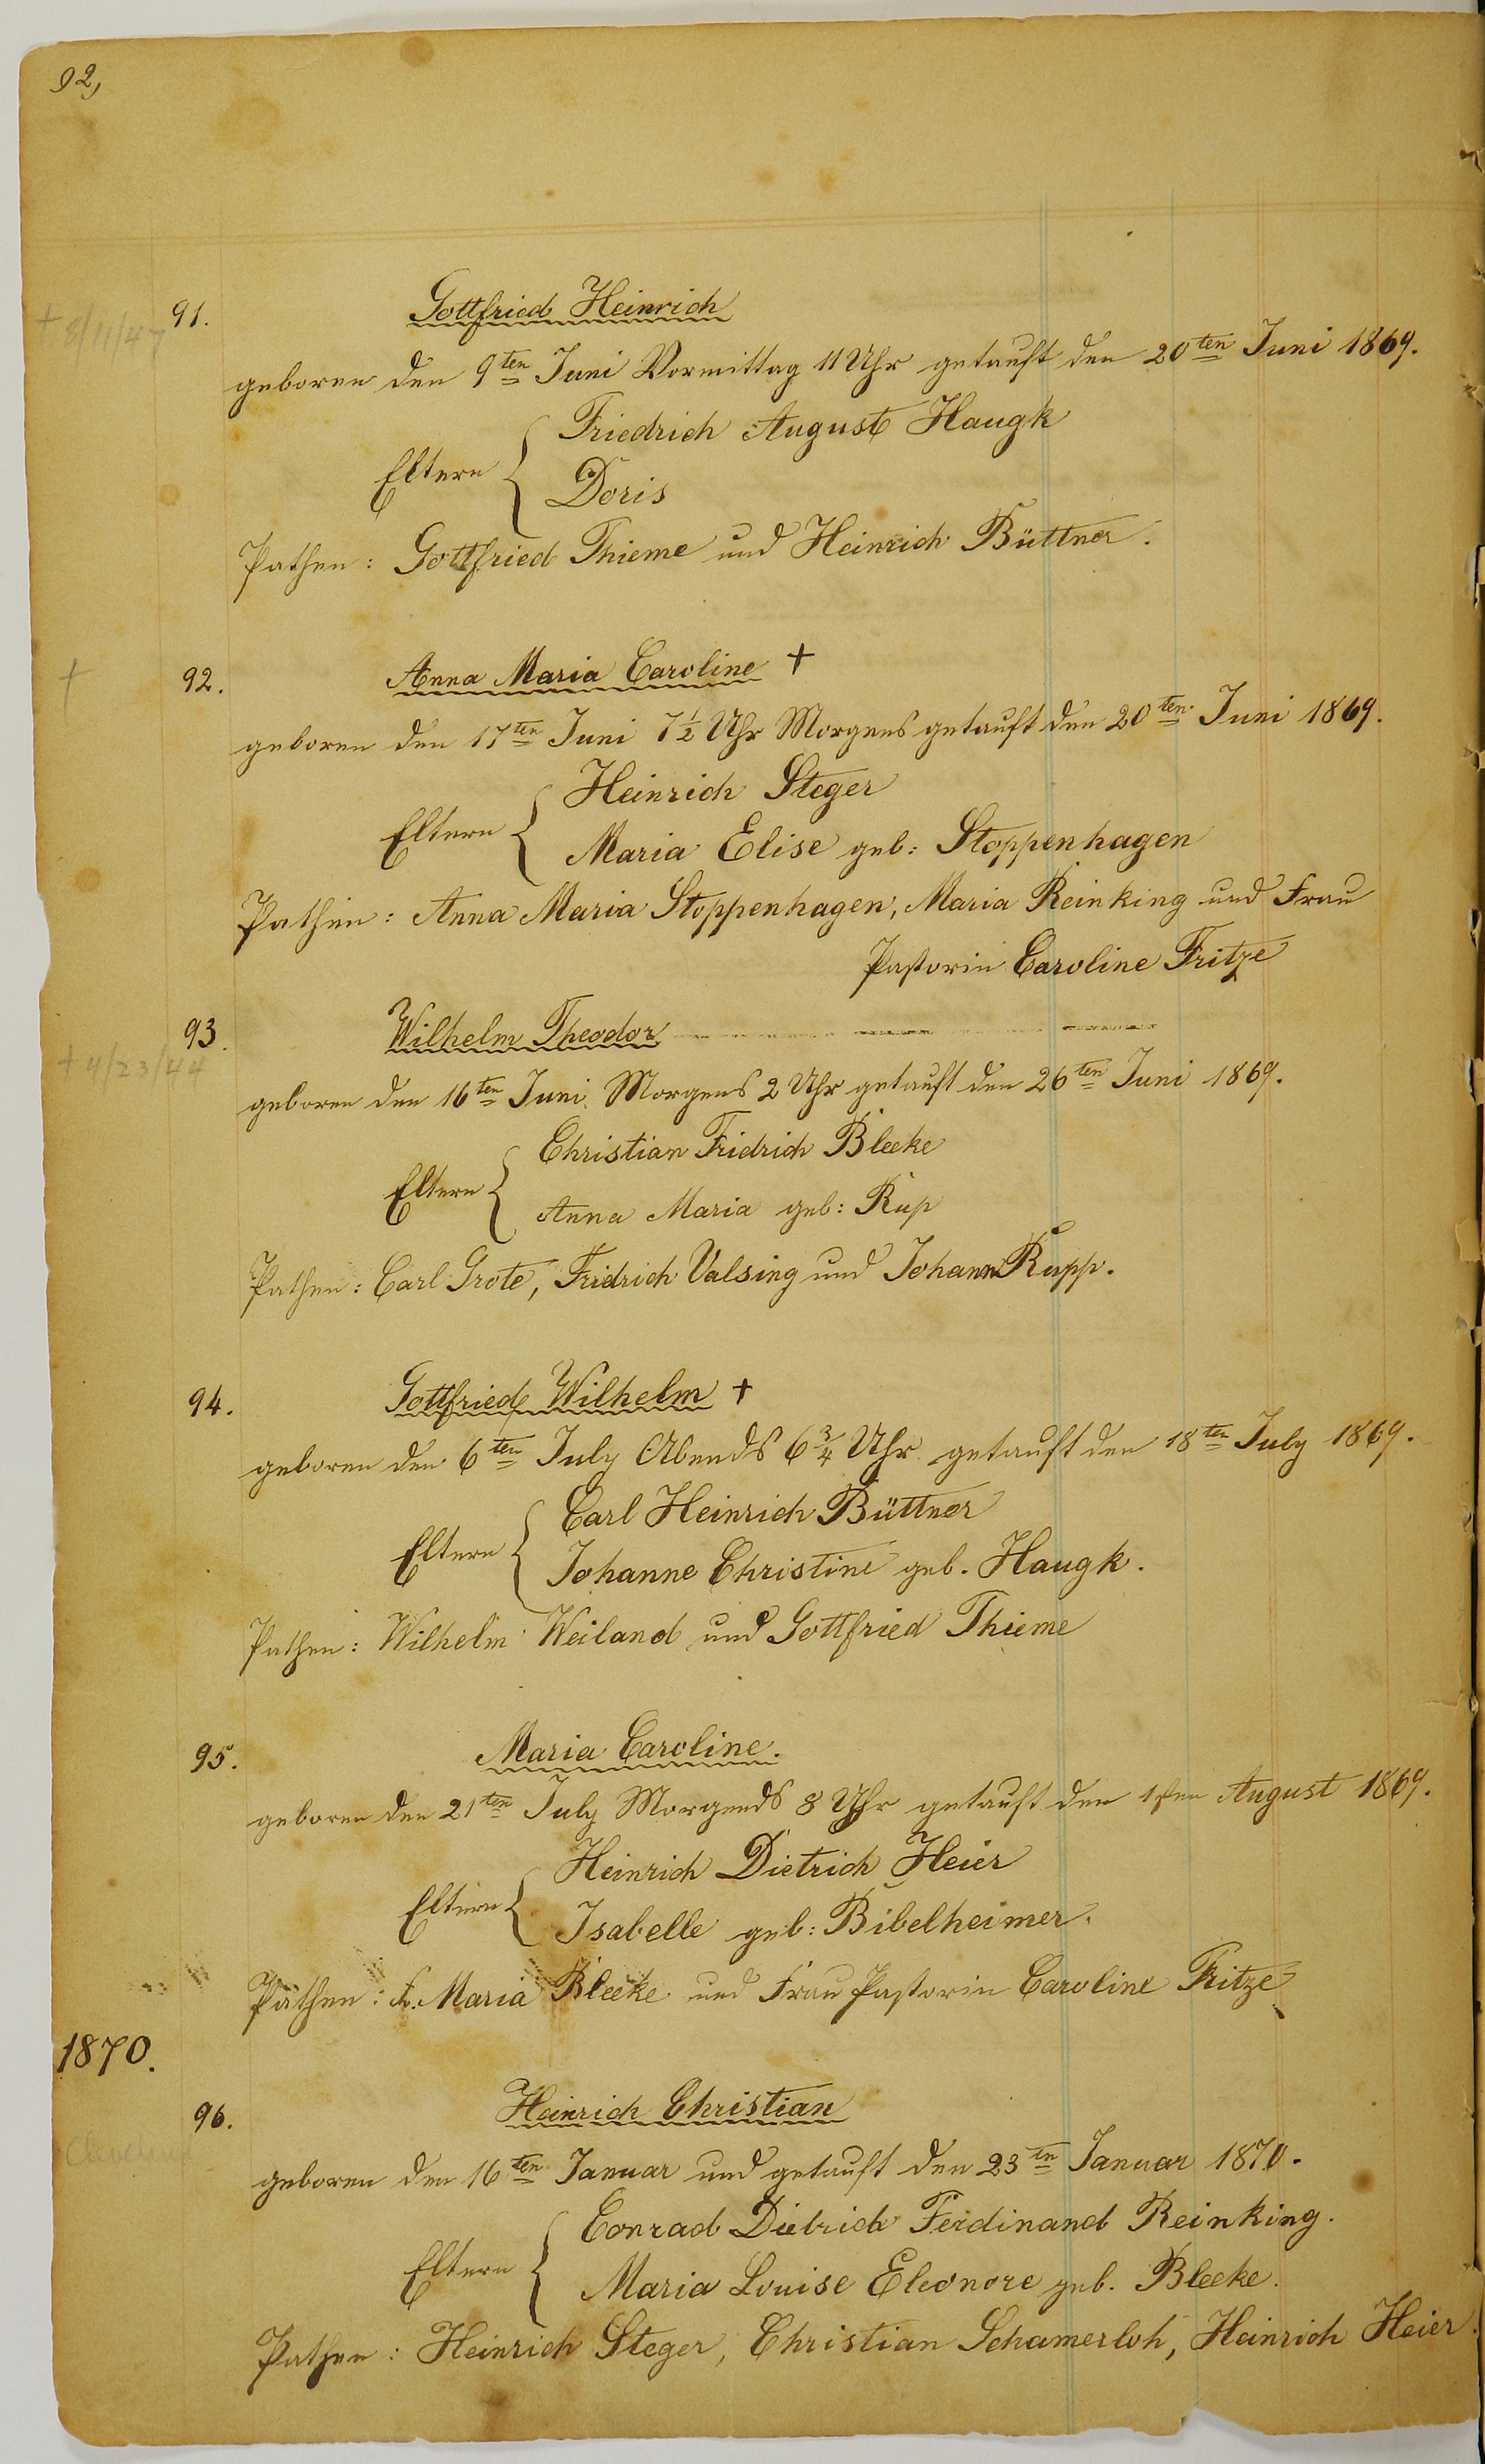 92,
91. Gottfried Heinrich
+ 8/11/47
geboren den 9ten Juni Vormittag 11 Uhr getauft den 20ten Juni 1869.
Eltern { Friedrich August Haugk
Doris
Pathen: Gottfried Thieme und Heinrich Büttner.
+ 92. Anna Maria Caroline +
geboren den 17ten Juni 7½ Uhr Morgens getauft den 20ten Juni 1869.
Eltern { Heinrich Steger
Maria Elise geb: Stoppenhagen
Pathen: Anna Maria Stoppenhagen, Maria Reinking und Frau
Pastorin Caroline Fritze
93. Wilhelm Theodor
+ 4/23/44
geboren den 16ten Juni Morgens 2 Uhr getauft den 26ten Juni 1869.
Eltern { Christian Fridrich Bleeke
Anna Maria geb: Rup
Pathen: Carl Grote, Fridrich Valsing und Johann Rupp.
94. Gottfried Wilhelm +
geboren den 6ten July Abends 6¾ Uhr getauft den 18ten July 1869.
Eltern { Carl Heinrich Büttner
Johanne Christine geb. Haugk.
Pathen: Wilhelm Weiland und Gottfried Thieme
95. Maria Caroline.
geboren den 21ten July Morgends 8 Uhr getauft den 1sten August 1869.
Eltern { Heinrich Dietrich Heier
Isabelle geb: Bibelheimer.
Pathen: Fr. Maria Bleeke und Frau Pastorin Caroline Fritze
1870.
96. Heinrich Christian
geboren den 16ten Januar und getauft den 23ten Januar 1870.
Eltern { Conrad Dietrich Ferdinand Reinking.
Maria Louise Eleonore geb. Bleeke.
Pathen: Heinrich Steger, Christian Schamerloh, Heinrich Heier.